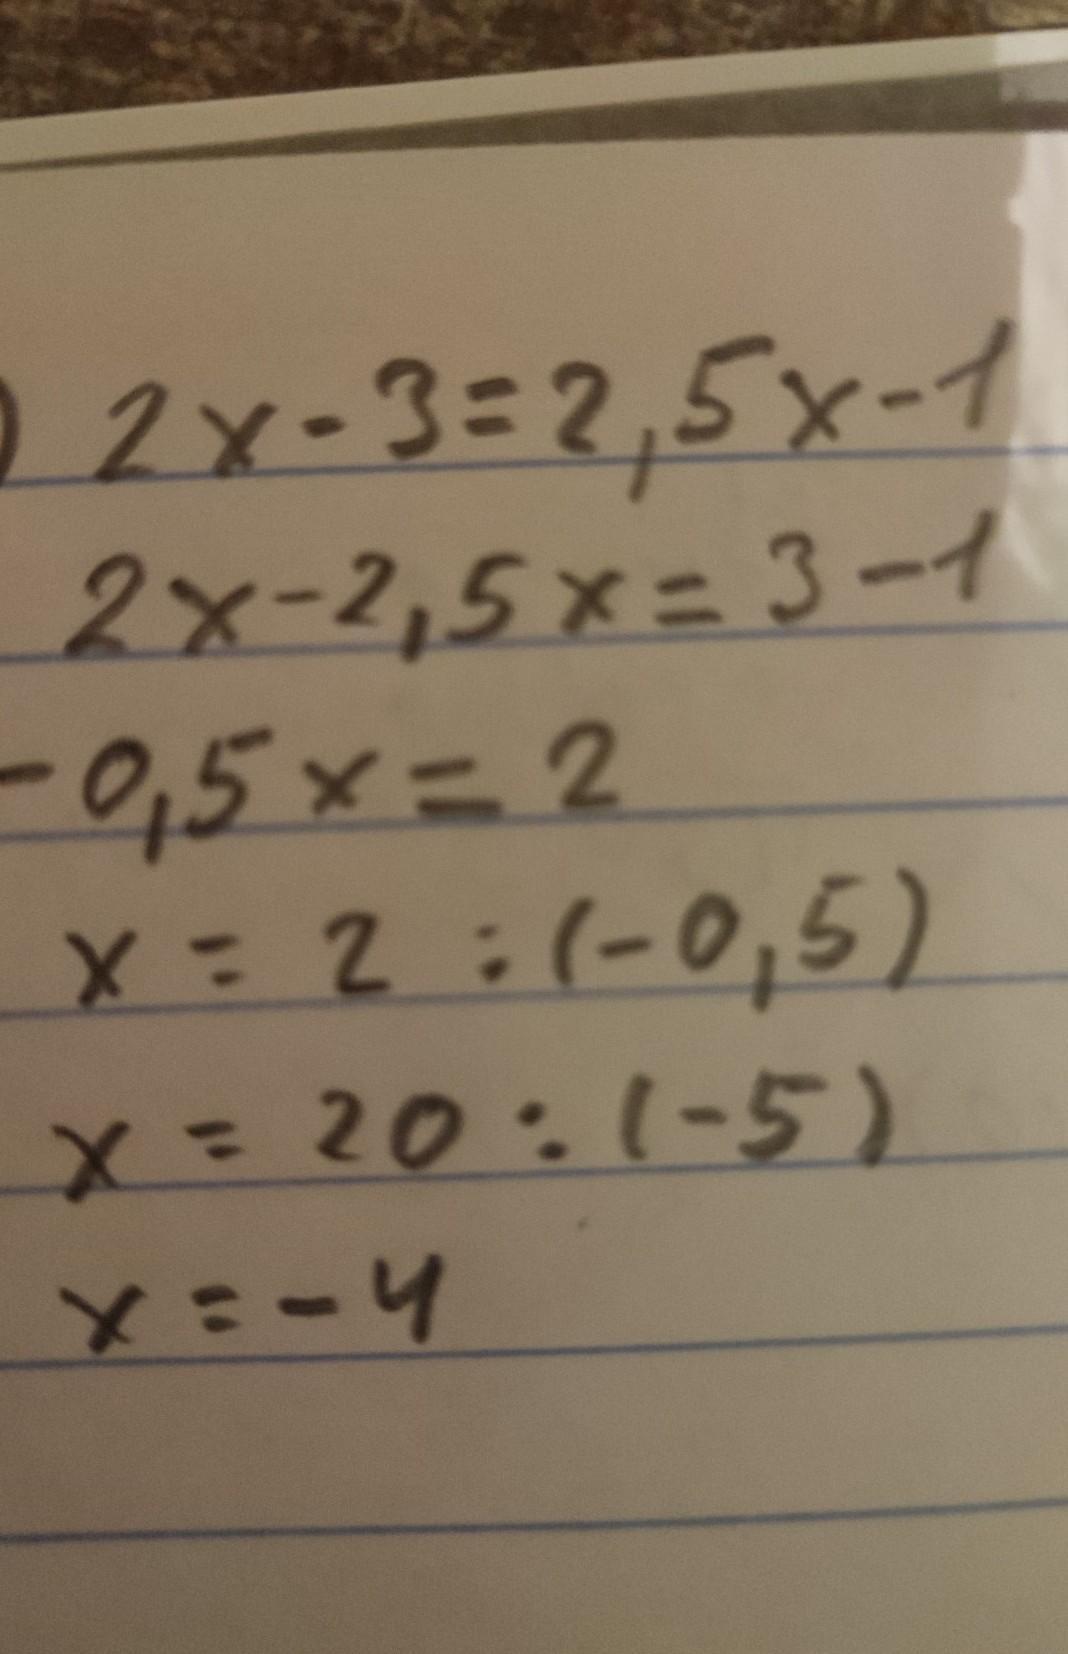 ) 2x - 3 = 2,5x - 1
2x - 2,5x = 3 - 1
- 0,5x = 2
x = 2 : (-0,5)
x = 20 : (-5)
x = - 4